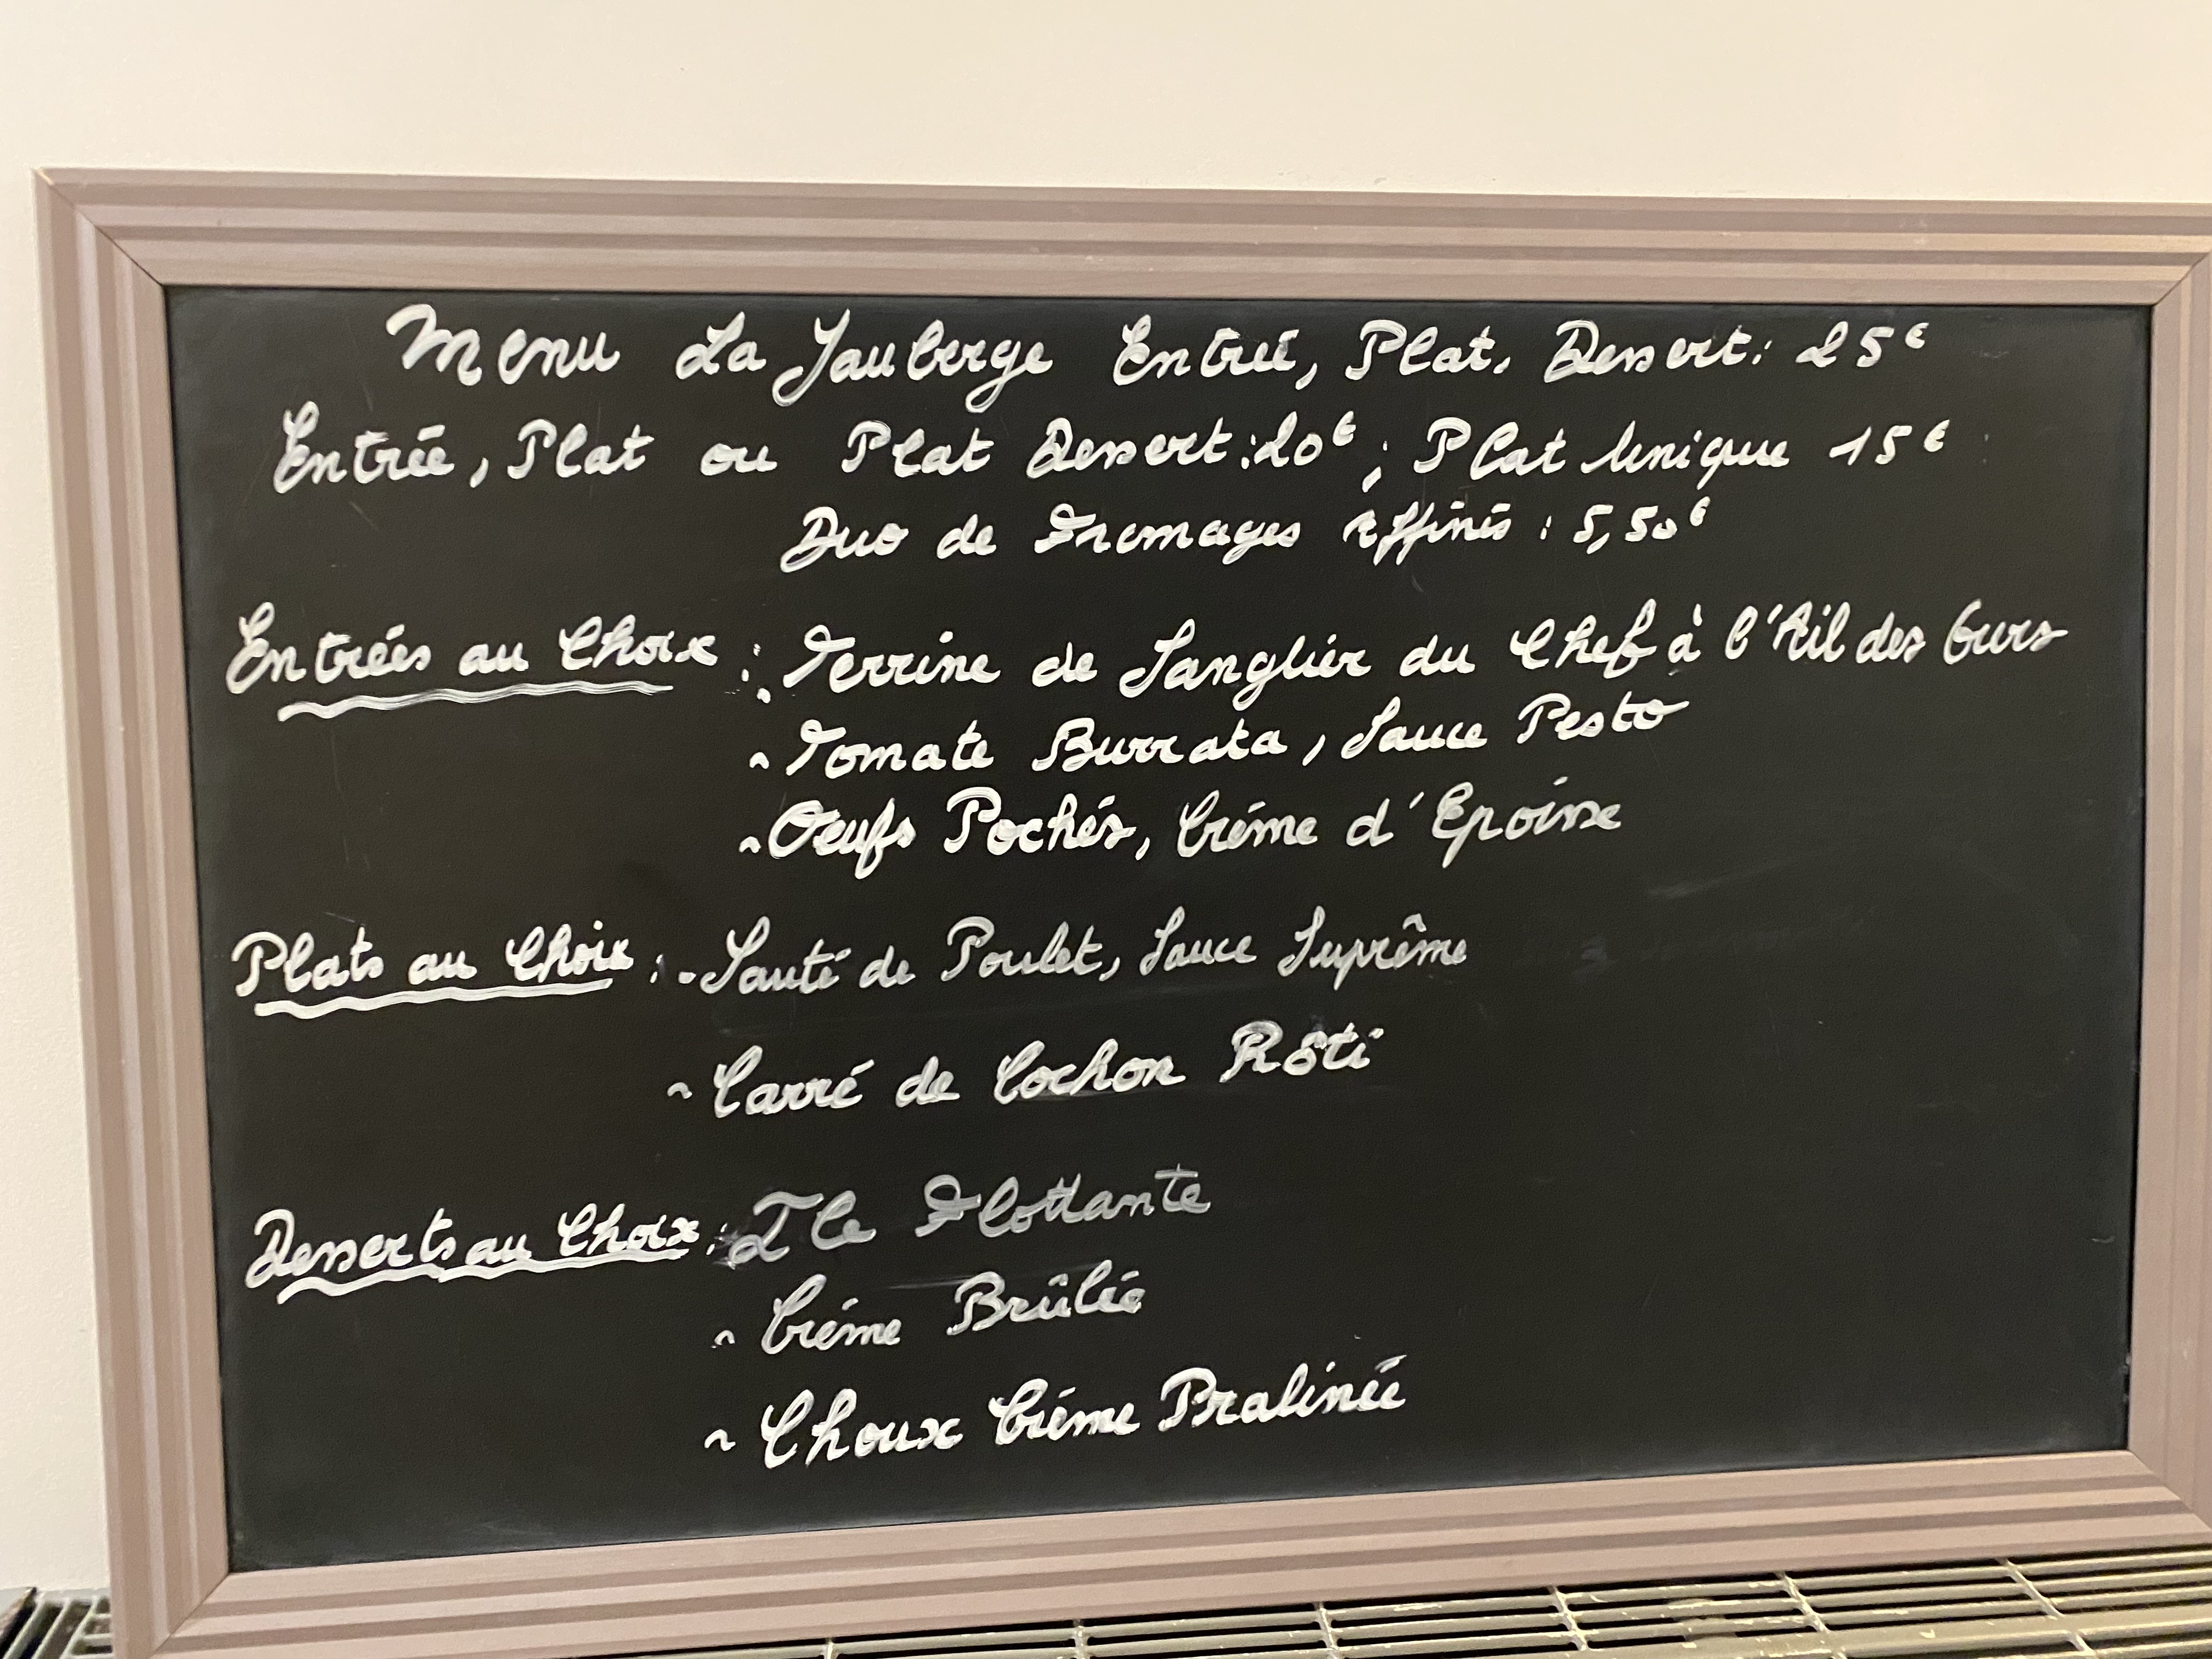 Menu La Jauberge Entrée, Plat, Dessert: 25€
Entrée, Plat ou Plat Dessert: 20€; Plat Unique 15€
Duo de Fromages Affinés: 5,50€
Entrées au Choix: - Terrine de Sanglier du Chef à l'Ail des Ours
- Tomate Burrata, Sauce Pesto
- Oeufs Pochés, Crème d'Epoisse
Plats au Choix: - Sauté de Poulet, Sauce Suprême
- Carré de Cochon Rôti
Desserts au Choix: Ile Flottante
- Crème Brûlée
- Choux Crème Pralinée